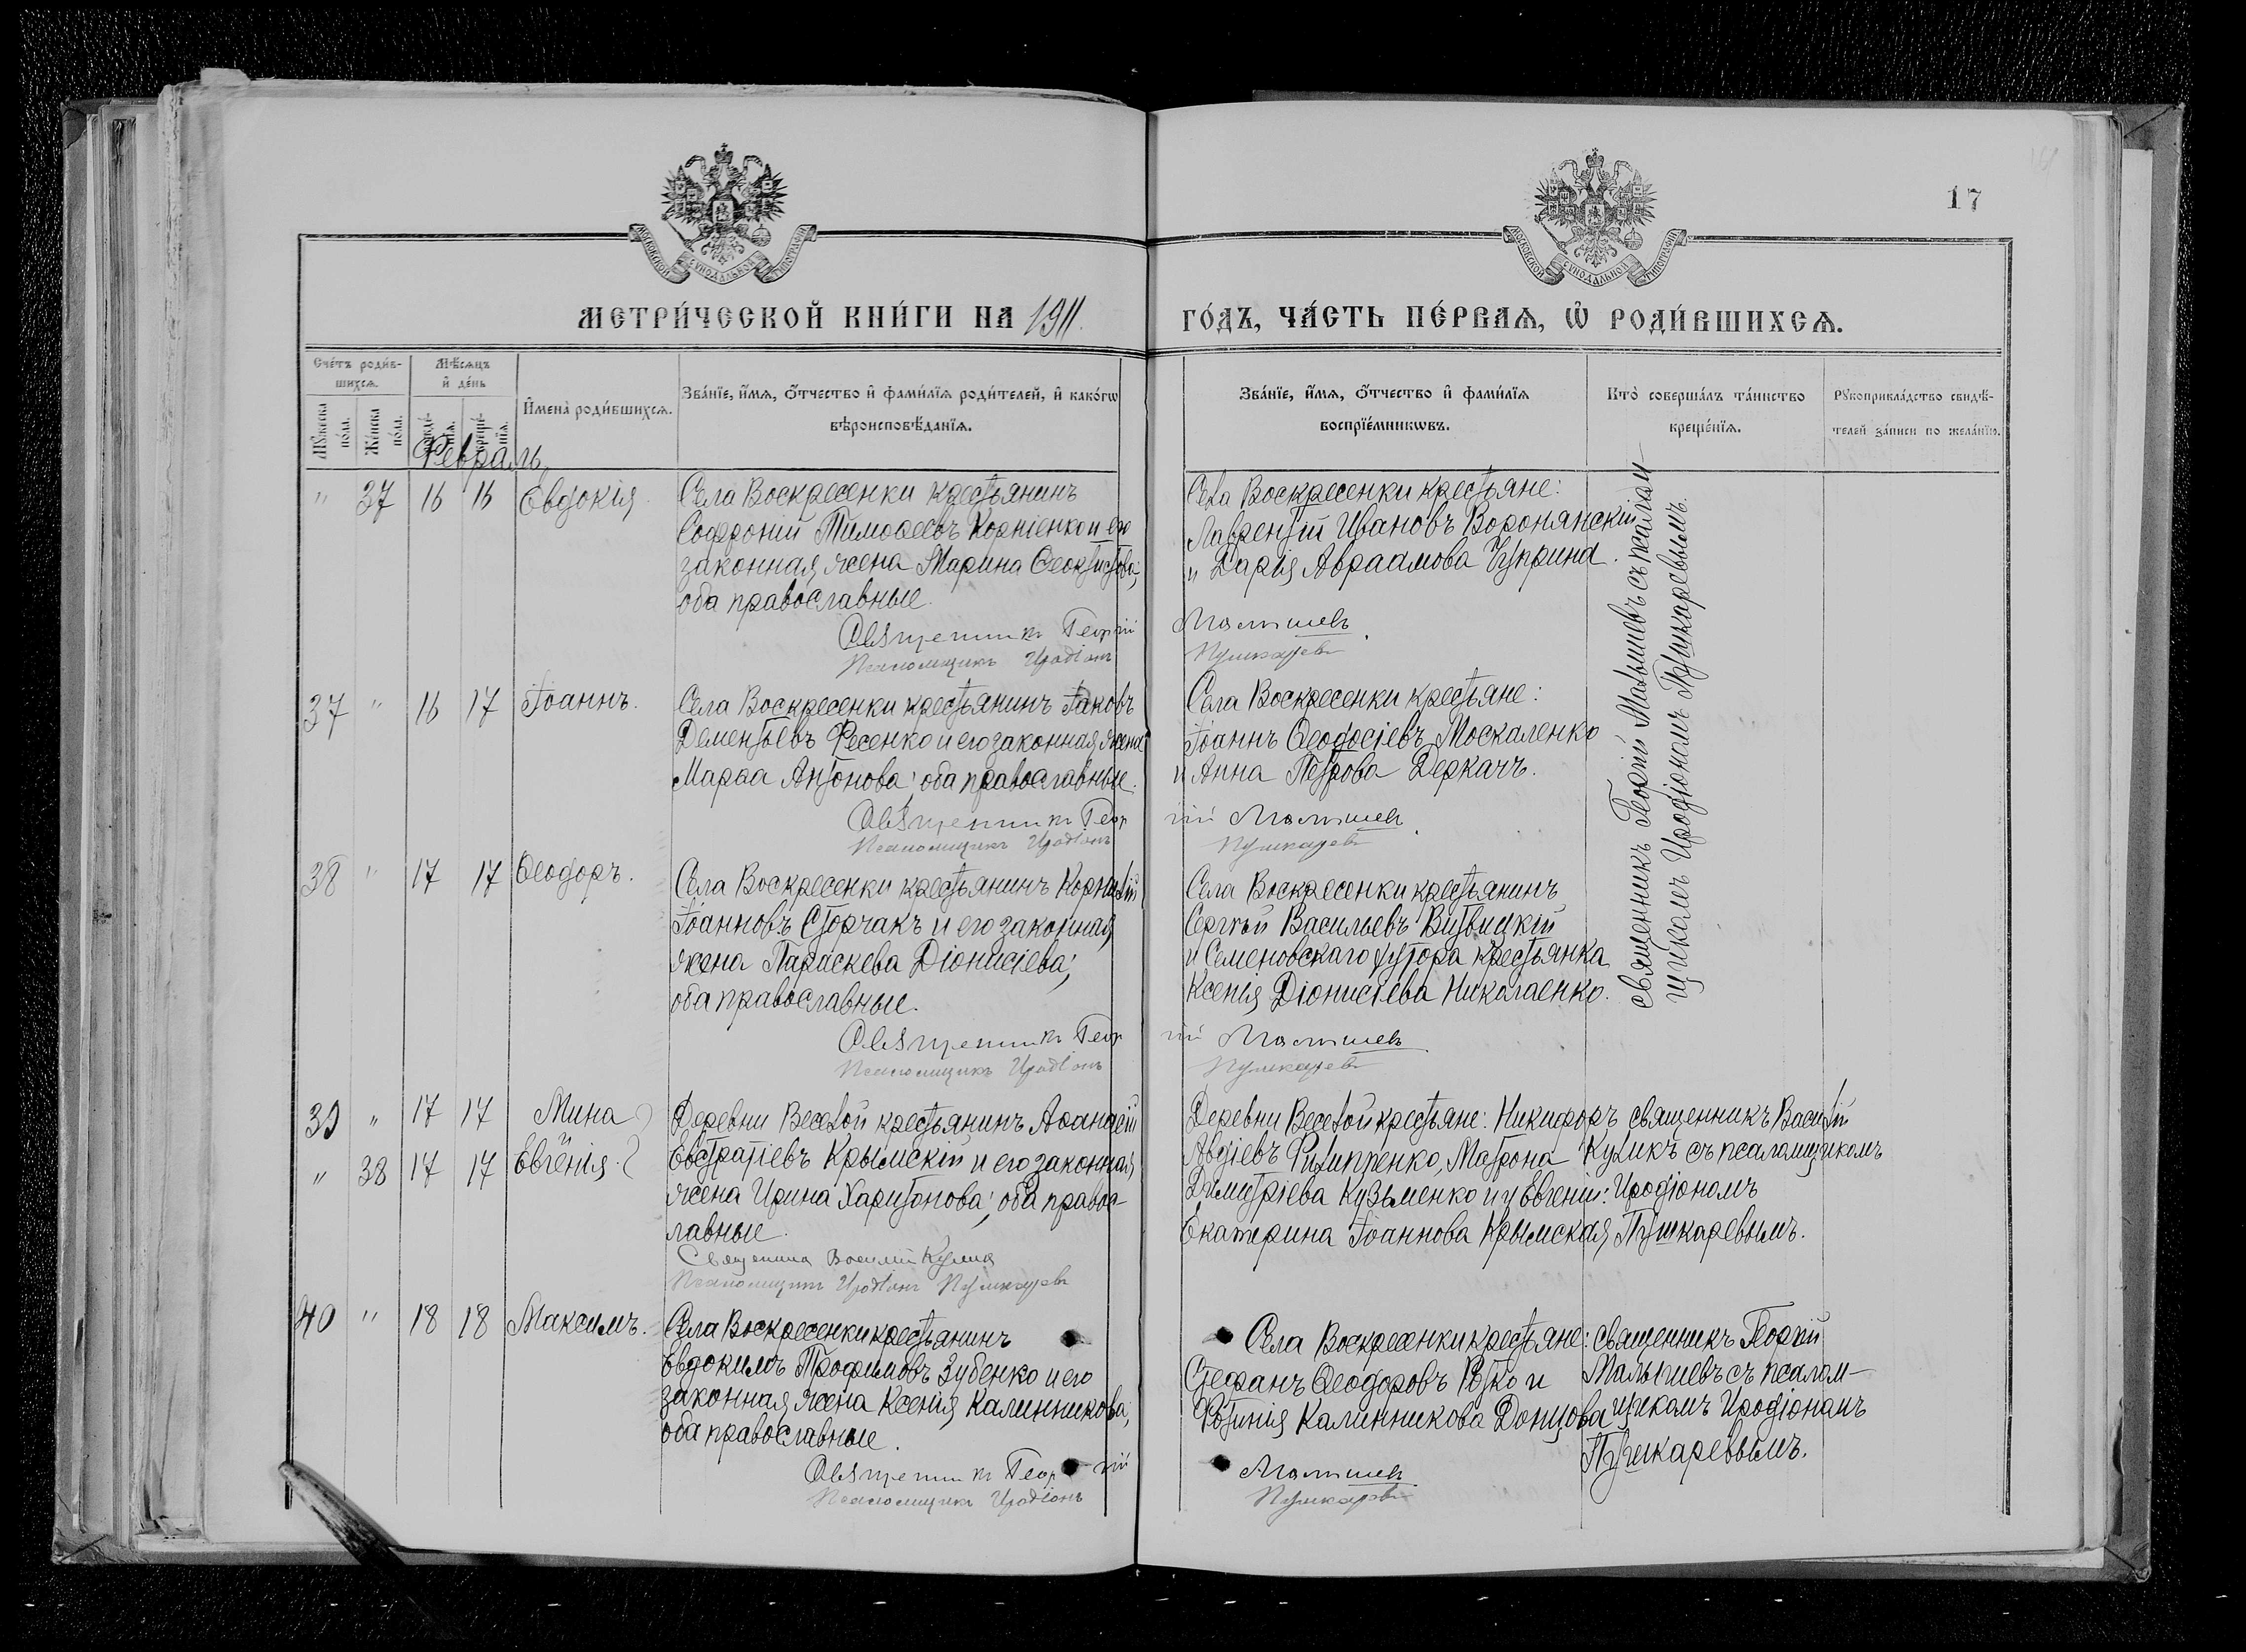 17
МОСКОВСКОЙ СѴНОДАЛЬНОЙ ТИПОГРАФІИ
МОСКОВСКОЙ СѴНОДАЛЬНОЙ ТИПОГРАФІИ
МЕТРИ́ЧЕСКОЙ КНИ́ГИ НА 1911.
ГО́ДЪ, ЧА́СТЬ ПЕ́РВАѦ, Ѡ҆ РОДИ́ВШИХСѦ.
Сче́тъ роди́в-
шихсѧ.
Мꙋ́жеска по́ла.
Же́нска по́ла.
Мѣ́сѧцъ
и҆ де́нь
И҆мена̀ роди́вшихсѧ.
Зва́нїе, и҆́мѧ, ѻ҆́тчество и҆ фами́лїѧ роди́телей, и҆ како́гѡ
вѣроисповѣ́данїѧ.
Зва́нїе, и҆́мѧ, ѻ҆́тчество и҆ фами́лїѧ
воспрїе́мникѡвъ.
Кто̀ соверша́лъ та́инство
креще́нїѧ.
Рꙋкоприкла́дство свидѣ́-
телей за́писи по жела́нїю.
Февраль
" 37 16 16 Евдокія
Села Воскресенки крестьянинъ
Софроній Тимоѳеевъ Корніенко и его
законная жена Марина Ѳеоктистова;
оба православные.
Священникъ Георгій Малышевъ
Псаломщикъ Иродіонъ Пушкаревъ
Села Воскресенки крестьяне:
Лаврентій Ивановъ Воронянскій
и Дарія Авраамова Чуприна.
священникъ Георгій Малышевъ съ псалом-
щикомъ Иродіономъ Пушкаревымъ.
37 " 16 17 Іоаннъ.
Села Воскресенки крестьянинъ Іаковъ
Дементьевъ Фесенко и его законная жена
Марѳа Антонова; оба православные.
Священникъ Георгій Малышевъ
Псаломщикъ Иродіонъ Пушкаревъ
Села Воскресенки крестьяне:
Іоаннъ Ѳеодосіевъ Москаленко
и Анна Петрова Деркачъ.
38 " 17 17 Ѳеодоръ.
Села Воскресенки крестьянинъ Корнилій
Іоанновъ Сторчакъ и его законная
жена Параскева Діонисіева;
оба православные.
Священникъ Георгій Малышевъ
Псаломщикъ Иродіонъ Пушкаревъ
Села Воскресенки крестьянинъ
Сергѣй Васильевъ Витвицкій
и Семеновскаго хутора крестьянка
Ксенія Діонисіева Николаенко.
39 " 17 17 Мина
и
" 38 17 17 Евгенія.
Деревни Веселой крестьянинъ Аѳанасій
Евстратіевъ Крымскій и его законная
жена Ирина Харитонова; оба правос-
лавные.
Священникъ Василій Куликъ
Псаломщикъ Иродіонъ Пушкаревъ
Деревни Веселой крестьяне: Никифоръ
Авдіевъ Филипренко, Матрона
Димитріева Кузьменко и у Евгеніи:
Екатерина Іоаннова Крымская
священникъ Василій
Куликъ съ псаломщикомъ
Иродіономъ
Пушкаревымъ.
40 " 18 18 Максимъ.
Села Воскресенки крестьянинъ
Евдокимъ Трофимовъ Зубенко и его
законная жена Ксенія Калинникова;
оба православные.
Священникъ Георгій Малышевъ
Псаломщикъ Иродіонъ Пушкаревъ
Села Воскресенки крестьяне:
Стефанъ Ѳеодоровъ и
Фотинія Калинникова Донцова
священникъ Георгій
Малышевъ съ псалом-
щикомъ Иродіономъ
Пушкаревымъ.